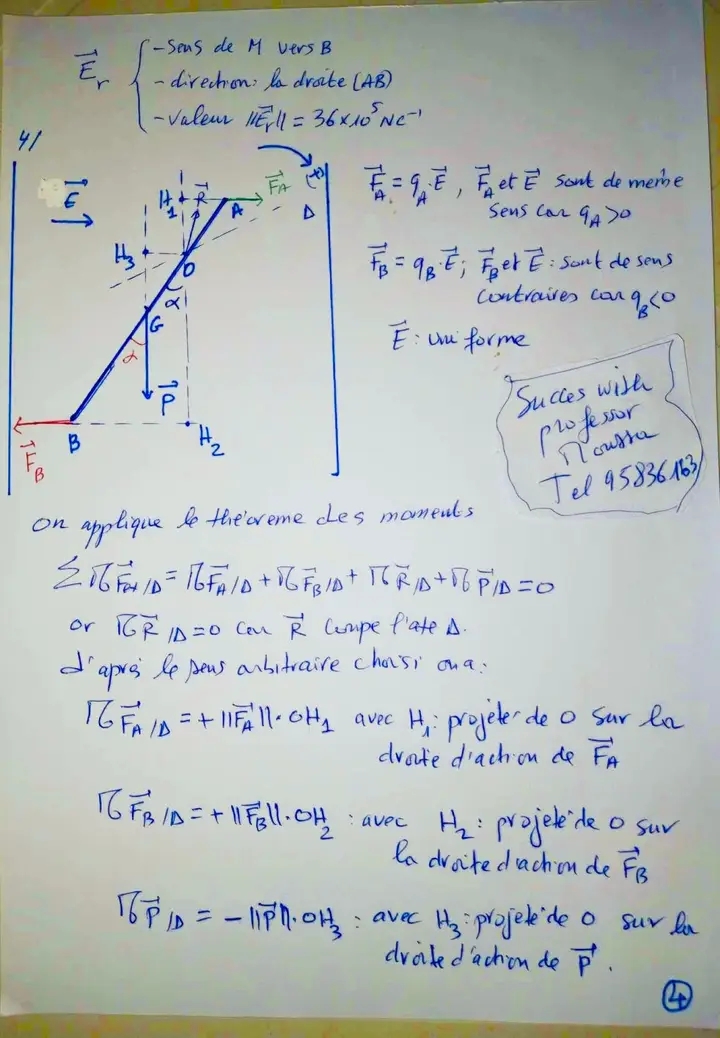 - Sens de M vers B
E⃗r { - direction: la droite (AB)
- valeur ||E⃗r|| = 36×10⁵ NC⁻¹
4/
E⃗
H₁
R⃗
A
F⃗A
(+)
Δ
H₃
O
α
G
α
P⃗
B
H₂
F⃗B
F⃗A = qA.E⃗, F⃗A et E⃗ sont de même
sens car qA>0
F⃗B = qB.E⃗; F⃗B et E⃗: sont de sens
contraires car qB<0
E⃗: uniforme
Succes with
professor
Moussa
Tel 95836163
On applique le théoreme des moments
∑ M F⃗ext/Δ = M F⃗A/Δ + M F⃗B/Δ + M R⃗/Δ + M P⃗/Δ = 0
or M R⃗/Δ = 0 car R⃗ coupe l'axe Δ.
d'après le sens arbitraire choisi on a:
M F⃗A/Δ = + ||F⃗A||. OH₁ avec H₁: projeté de O sur la
droite d'action de F⃗A
M F⃗B/Δ = + ||F⃗B||. OH₂ : avec H₂: projeté de O sur
la droite d'action de F⃗B
M P⃗/Δ = - ||P⃗||. OH₃ : avec H₃: projeté de O sur la
droite d'action de P⃗.
4